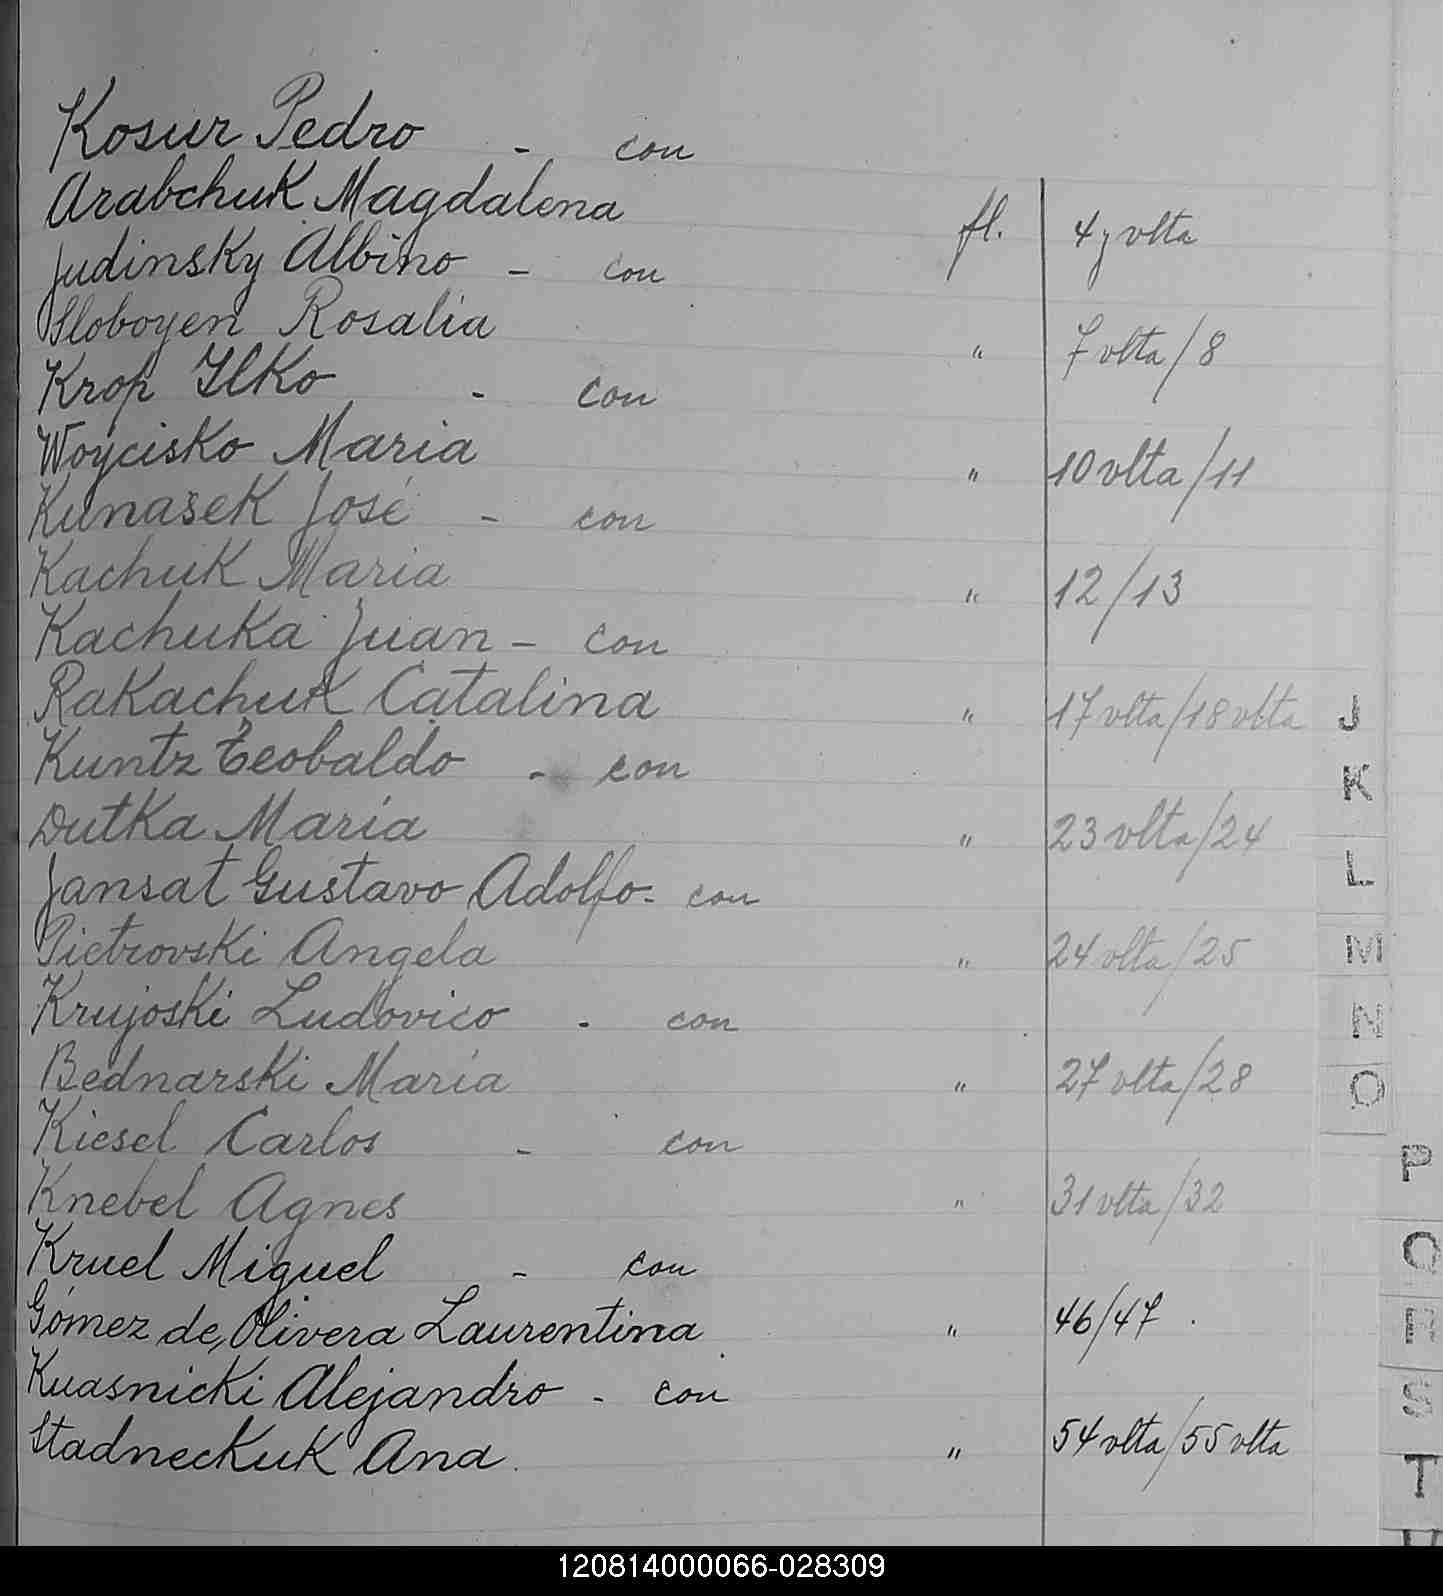 Kosur Pedro - con
Arabchuk Magdalena fl. 4 y vlta
Judinsky Albino - con
Sloboyen Rosalia " 7 vlta/8
Krop Ilko - con
Woycisko Maria " 10 vlta/11
Kunasek José - con
Kachuk Maria " 12/13
Kachuka Juan - con
Rakachuk Catalina " 17 vlta/18 vlta
Kuntz Teobaldo - con
Dutka María " 23 vlta/24
Jansat Gustavo Adolfo - con
Pietrovski Angela " 24 vlta/25
Krujoski Ludovico - con
Bednarski María " 27 vlta/28
Kiesel Carlos - con
Knebel Agnes " 31 vlta/32
Kruel Miguel - con
Gómez de Olivera Laurentina " 46/47.
Kuasnicki Alejandro - con
Stadneckuk Ana. " 54 vlta/55 vlta
J
K
L
M
N
O
P
Q
R
S
T
120814000066-028309